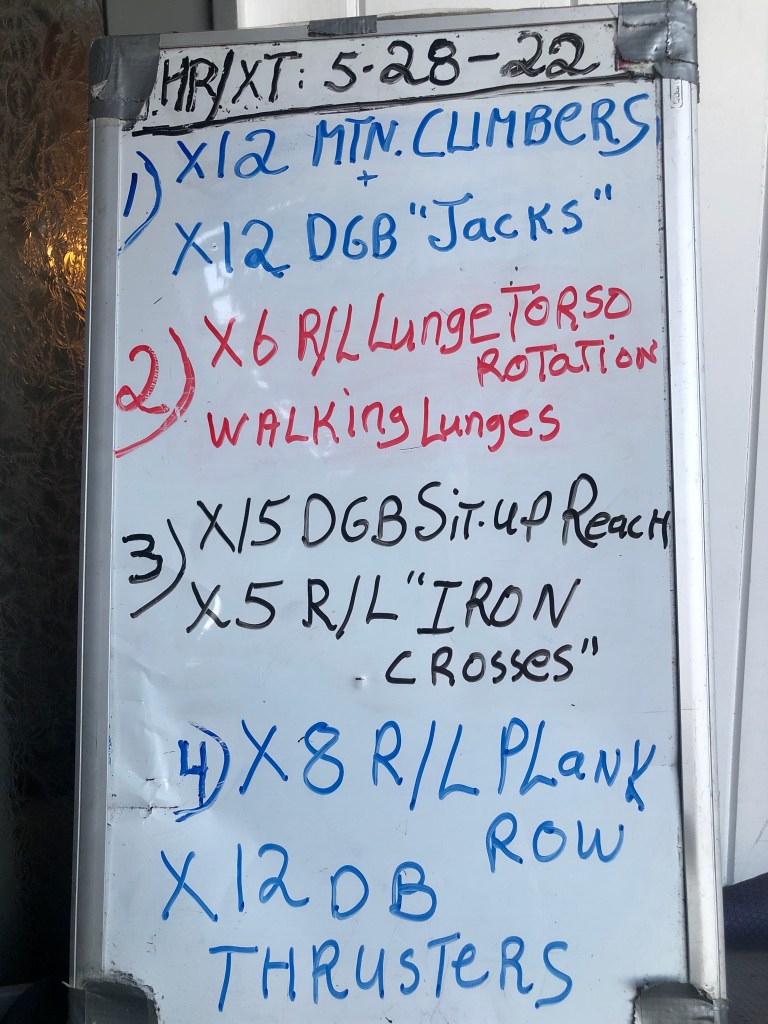 HR/XT: 5·28-22
1) X12 MTN. CLIMBERS
+
X12 DGB "Jacks"
2) X6 R/L Lunge TORSO
ROTATION
WALKing Lunges
3) X15 DGB Sit-up Reach
X5 R/L "IRON
CROSSES"
4) X8 R/L PLank
ROW
X12 DB
THRUSTeRS